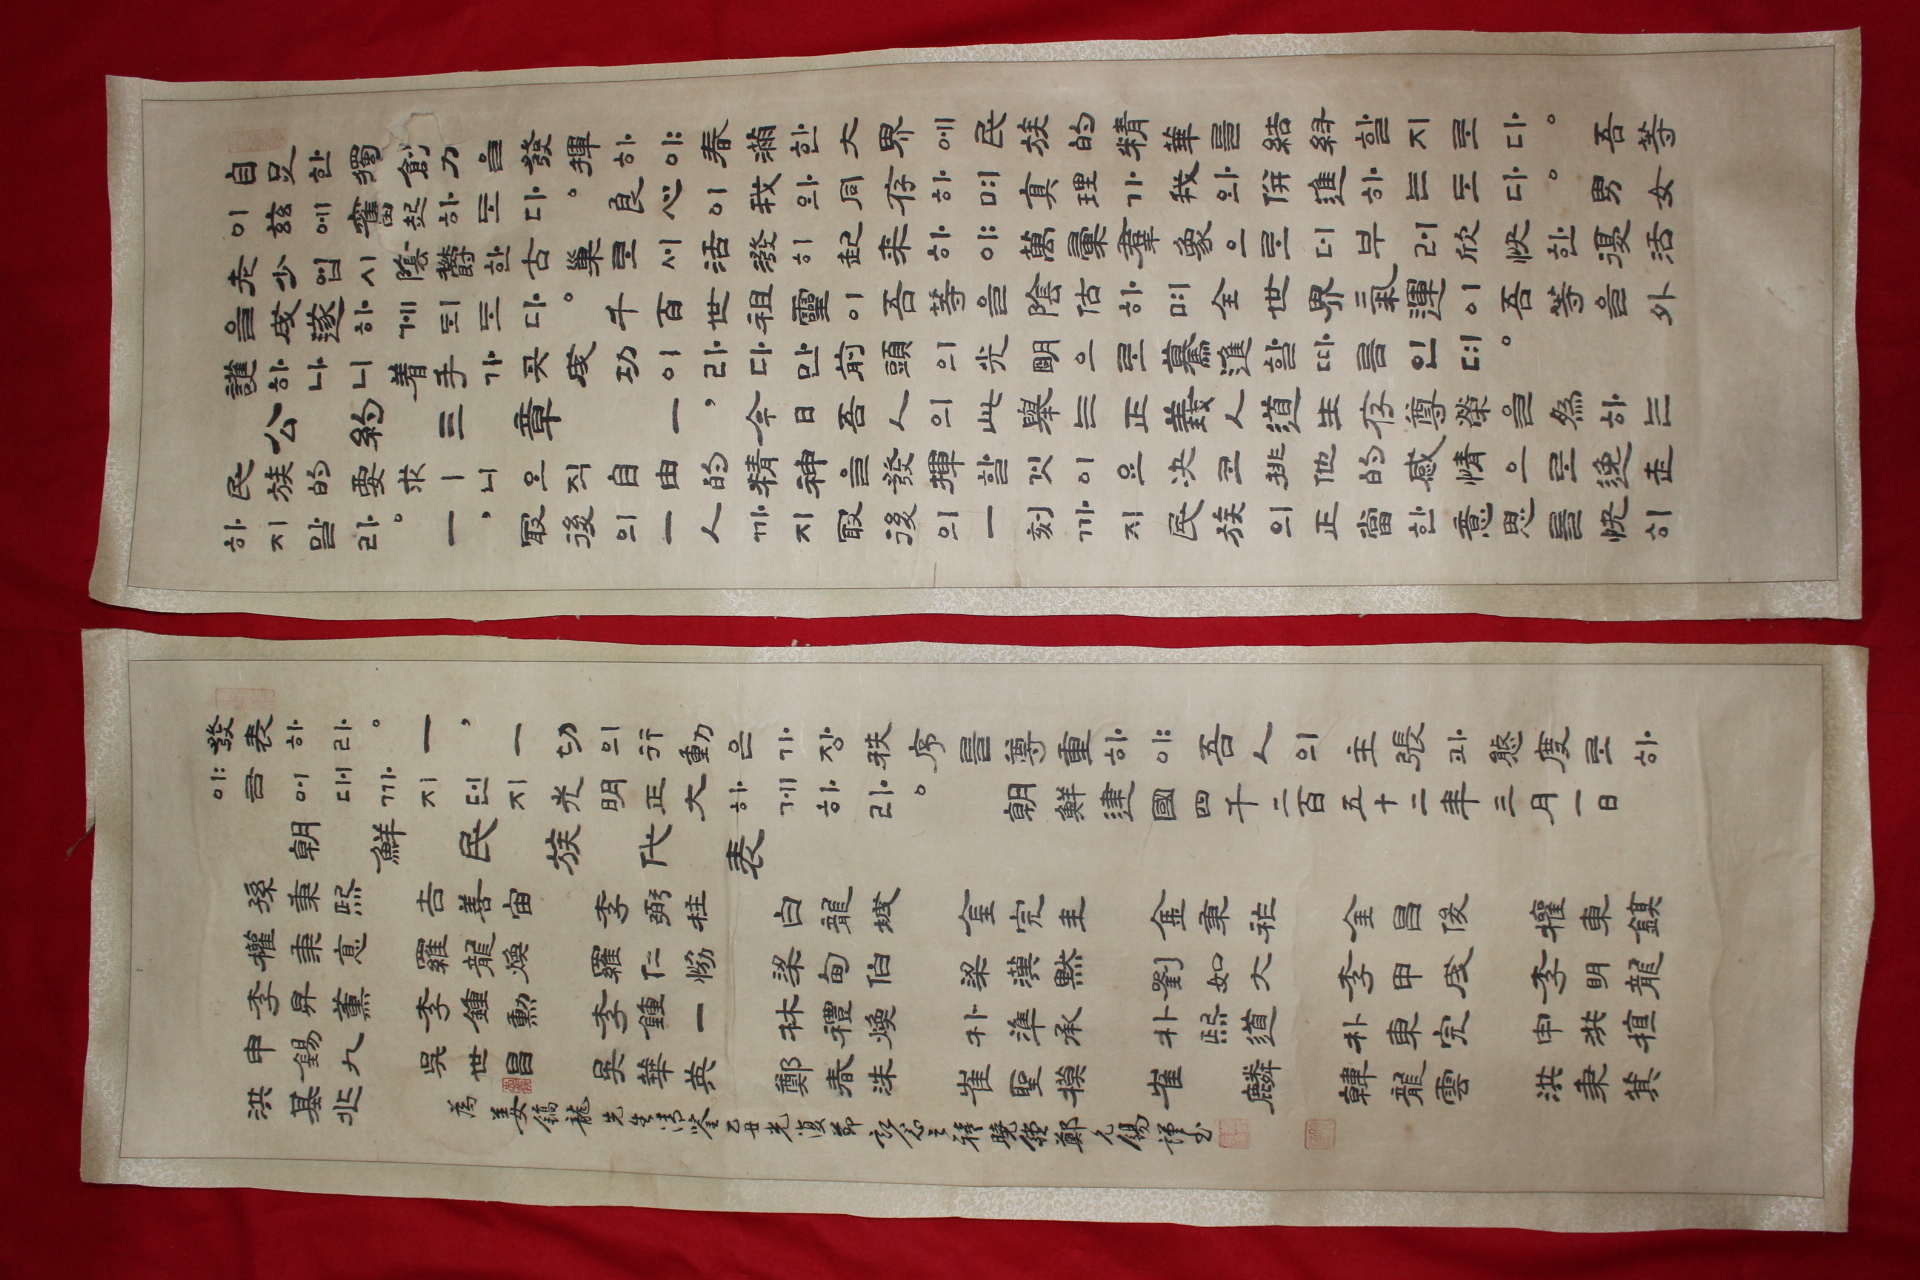 自足한獨創力을發揮하야春滿한大界에民族的精華를結紐할지로다。吾等
이玆에奮起하도다。良心이我와同存하며眞理가我와併進하는도다。男女
老少업시陰鬱한古巢로서活潑히起來하야萬彙羣象으로더부러欣快한復活
을成遂하게되도다。千百世祖靈이吾等을陰佑하며全世界氣運이吾等을外
護하나니着手가곳成功이라다만前頭의光明으로驀進할따름인뎌。
公約三章 一,今日吾人의此擧는正義人道生存尊榮을爲하는
民族的要求ㅣ니오직自由的精神을發揮할것이오決코排他的感情으로逸走
하지말라。一,最後의一人까지最後의一刻까지民族의正當한意思를快히
發表하라。一,一切의行動은가장秩序를尊重하야吾人의主張과態度로하
야금어대까지던지光明正大하게하라。 朝鮮建國四千二百五十二年三月一日
朝鮮民族代表
孫秉熙 吉善宙 李弼柱 白龍城 金完圭 金秉祚 金昌俊 權東鎭
權秉悳 羅龍煥 羅仁協 梁甸伯 梁漢默 劉如大 李甲成 李明龍
李昇薰 李鍾勳 李鍾一 林禮煥 朴準承 朴熙道 朴東完 申洪植
申錫九 吳世昌 吳華英 鄭春洙 崔聖模 崔麟 韓龍雲 洪秉箕
洪基兆
為姜鎬龍先生淸鑒乙丑光復節記念之禧曉 鄭允錫謹書